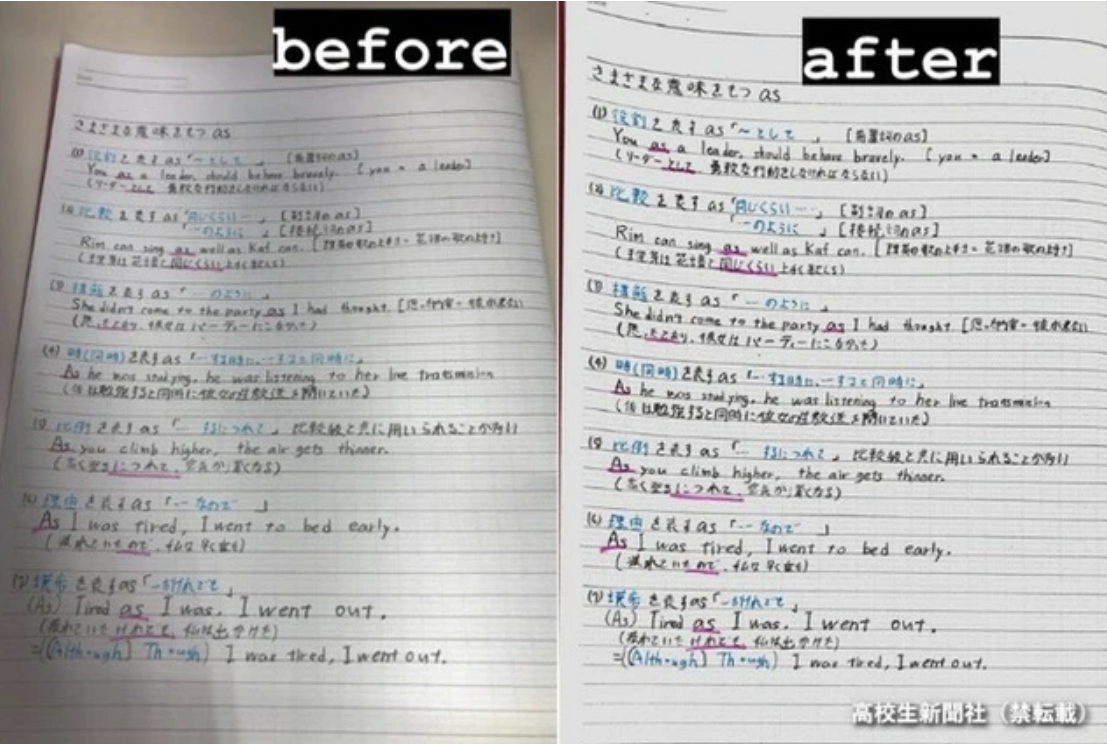 before
さまざまな意味をもつ as
(1) 役割を表す as 「〜として」 [前置詞のas]
You as a leader, should behave bravely. [you = a leader]
(リーダーとして 勇敢な行動をしなければならない)
(2) 比較を表す as 「同じくらい…」 [副詞のas]
「…のように」 [接続詞のas]
Rim can sing as well as Kaf can.
同じくらい上手く
(3) 様態を表す as 「…のように」
She didn't come to the party as I had thought.
(思ったとおり、彼女はパーティーにこなかった)
(4) 時(同時)を表す as 「…するときに、…すると同時に」
As he was studying, he was listening to her live transmission
(彼は勉強すると同時に彼女の生放送を聞いていた)
(5) 比例を表す as 「…するにつれて」 比較級と共に用いられることが多い
As you climb higher, the air gets thinner.
(高く登るにつれて、空気が薄くなる)
(6) 理由を表す as 「…なので」
As I was tired, I went to bed early.
(疲れていたので、私は早く寝た)
(7) 譲歩を表す as 「…だけれども」
(As) Tired as I was, I went out.
(疲れていたけれども、私は出かけた)
=(Although) Though) I was tired, I went out.
after
さまざまな意味をもつ as
(1) 役割を表す as 「〜として」 [前置詞のas]
You as a leader, should behave bravely. [you = a leader]
(リーダーとして 勇敢な行動をしなければならない)
(2) 比較を表す as 「同じくらい…」 [副詞のas]
「…のように」 [接続詞のas]
Rim can sing as well as Kaf can.
同じくらい上手く
(3) 様態を表す as 「…のように」
She didn't come to the party as I had thought.
(思ったとおり、彼女はパーティーにこなかった)
(4) 時(同時)を表す as 「…するときに、…すると同時に」
As he was studying, he was listening to her live transmission
(彼は勉強すると同時に彼女の生放送を聞いていた)
(5) 比例を表す as 「…するにつれて」 比較級と共に用いられることが多い
As you climb higher, the air gets thinner.
(高く登るにつれて、空気が薄くなる)
(6) 理由を表す as 「…なので」
As I was tired, I went to bed early.
(疲れていたので、私は早く寝た)
(7) 譲歩を表す as 「…だけれども」
(As) Tired as I was, I went out.
(疲れていたけれども、私は出かけた)
=(Although) Though) I was tired, I went out.
高校生新聞社（禁転載）